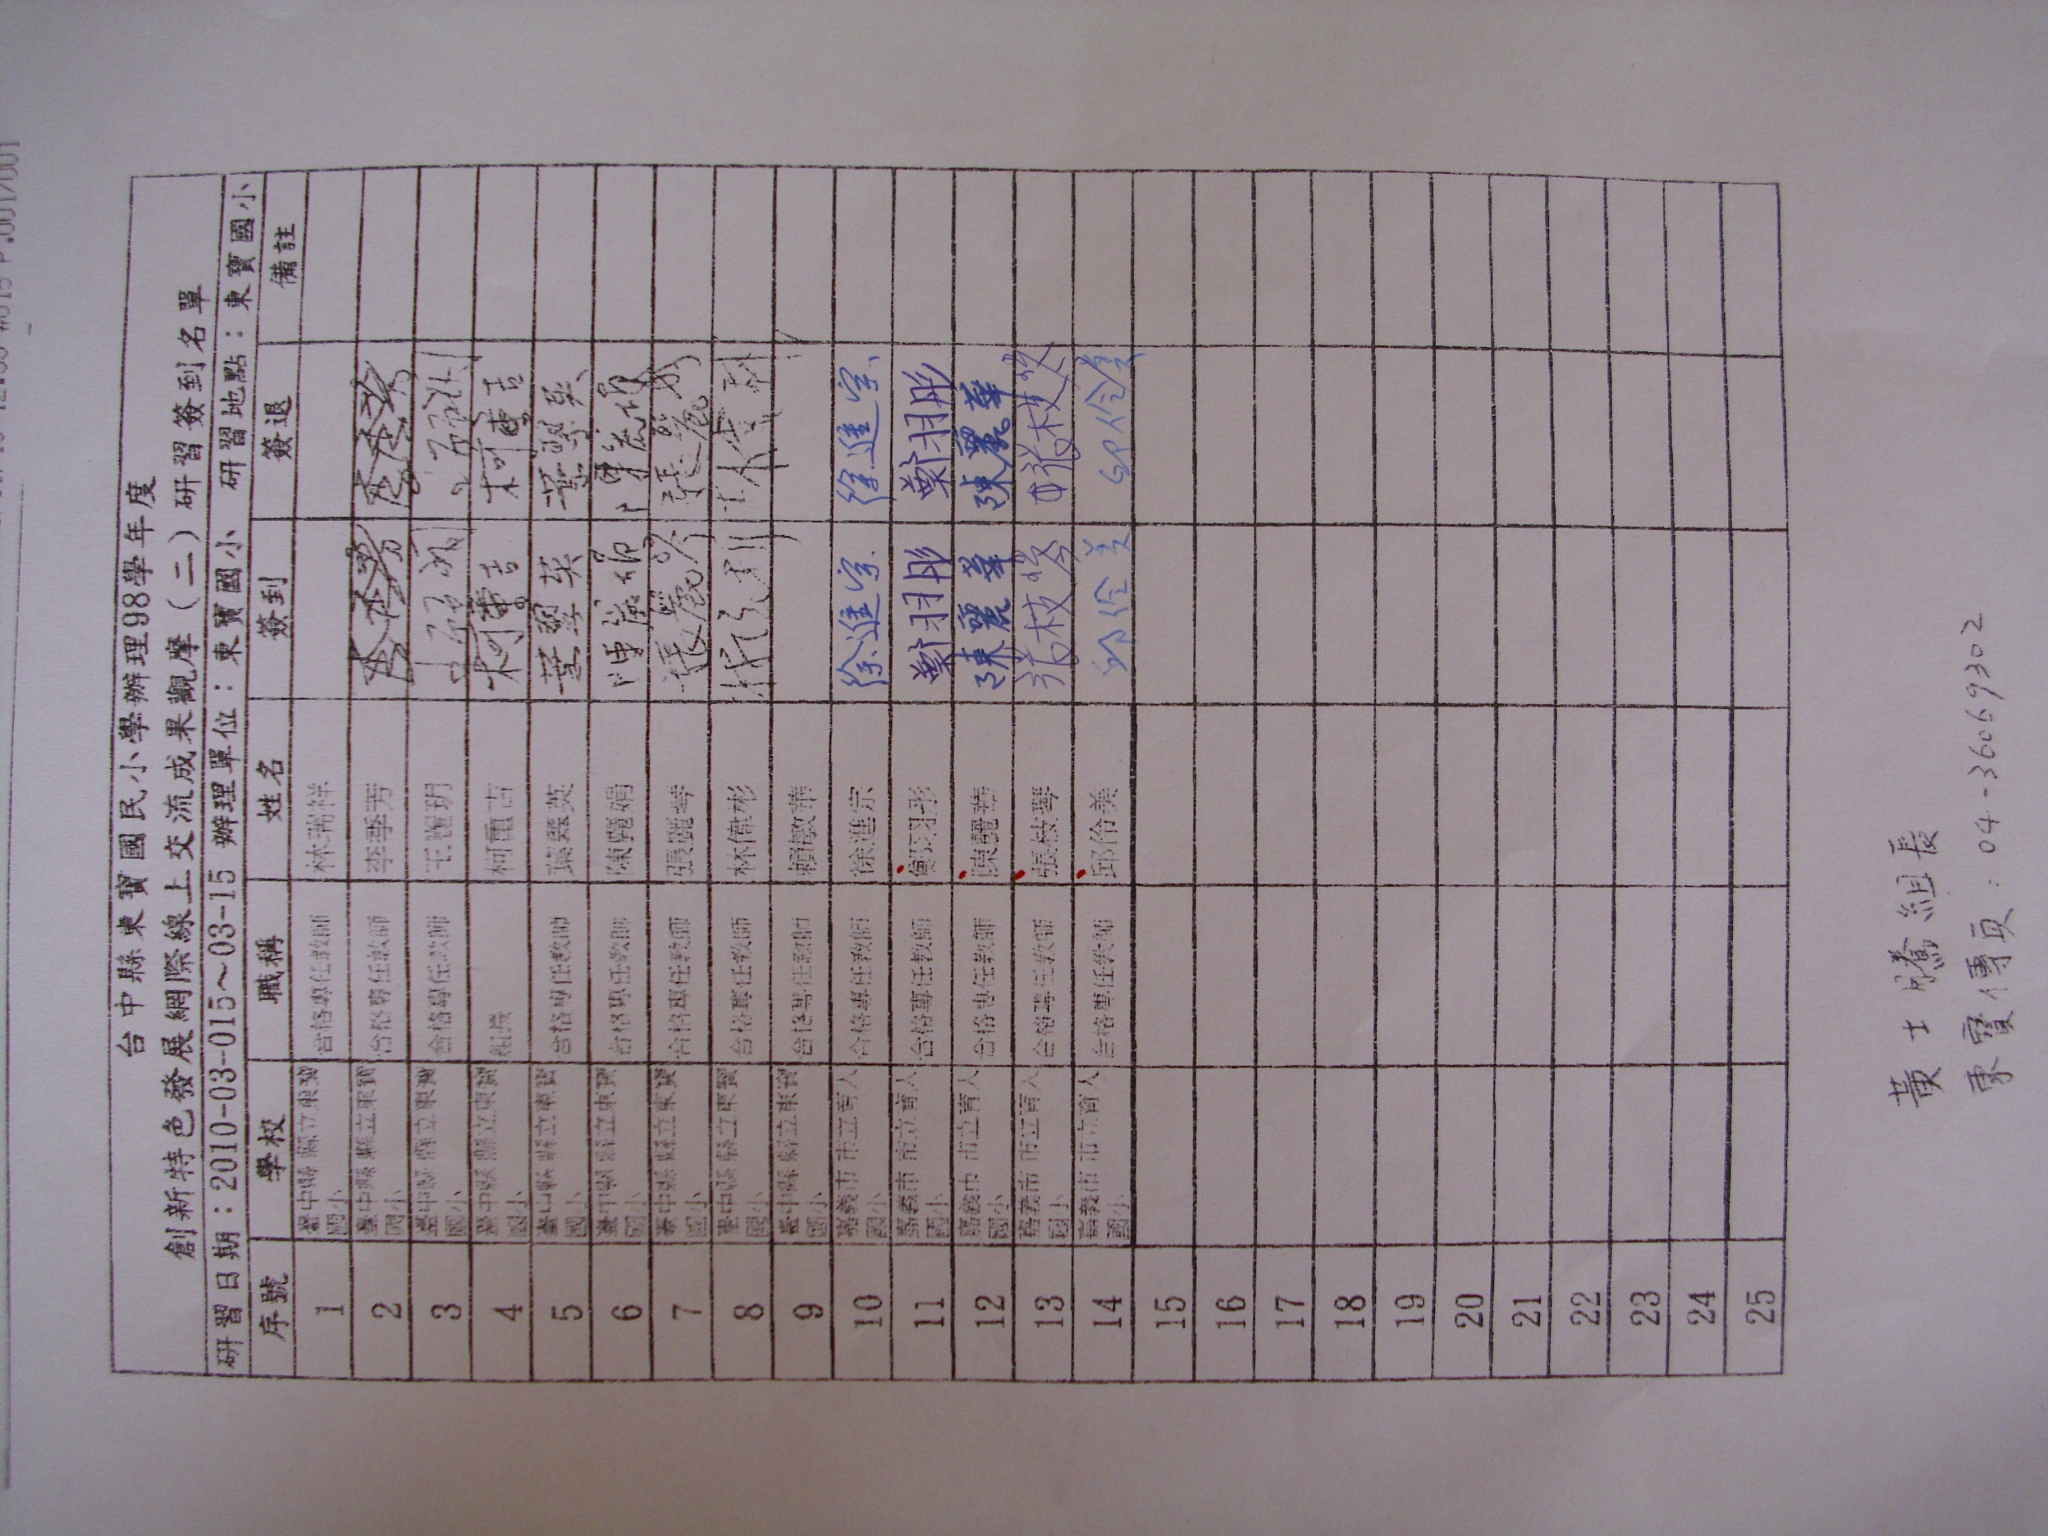 P.001/001
台中縣東寶國民小學辦理98學年度
創新特色發展網際線上交流成果觀摩（二）研習簽到名單
研習日期：2010-03-015～03-15 辦理單位：東寶國小 研習地點：東寶國小
序號 學校 職稱 姓名 簽到 簽退 備註
1 臺中縣縣立東寶國小 合格專任教師 林瑞祥
2 臺中縣縣立東寶國小 合格專任教師 李季芳
3 臺中縣縣立東寶國小 合格專任教師 王麗玥
4 臺中縣縣立東寶國小 組長 柯重吉 柯重吉 柯重吉
5 臺中縣縣立東寶國小 合格專任教師 葉翠英 葉翠英 葉翠英
6 臺中縣縣立東寶國小 合格專任教師
7 臺中縣縣立東寶國小 合格專任教師 張麗琴 張麗琴 張麗琴
8 臺中縣縣立東寶國小 合格專任教師 林偉彬
9 臺中縣縣立東寶國小 合格專任教師 賴敏華
10 嘉義市市立育人國小 合格專任教師 徐進宗 徐進宗 徐進宗
11 嘉義市市立育人國小 合格專任教師 鄭羽彤 鄭羽彤 鄭羽彤
12 嘉義市市立育人國小 合格專任教師 陳麗華 陳麗華 陳麗華
13 嘉義市市立育人國小 合格專任教師 張枝琴
14 嘉義市市立育人國小 合格專任教師 邱伶美 邱伶美 邱伶美
15
16
17
18
19
20
21
22
23
24
25
黃士騰組長
東寶傳真：04-36069302